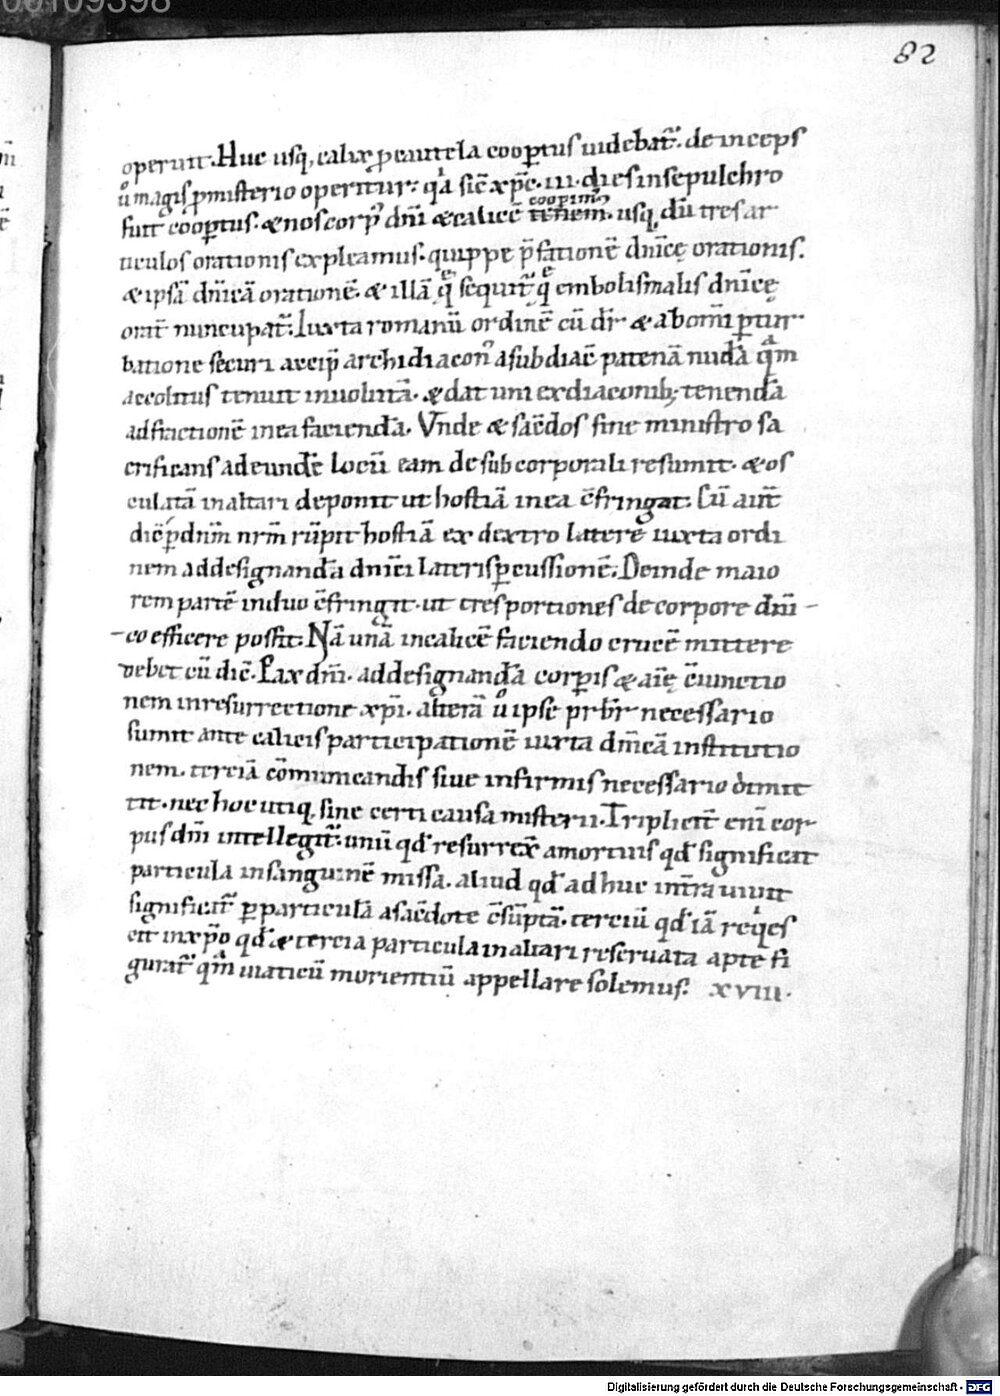 00109398
82
operuit. Huc usq; calix ꝓcautela coopertus uidebat̄. deinceps
u̇ magis ꝑmisterio operitur: qͣ sic̄ xp̄c. iii. dies insepulchro
fuit cooꝑtus. & nos corpꝰ dn̄i & calicē coopimꝰ tenem̄. usq; dū tres ar
ticulos orationis expleamus. quippe p̄fationē dn̄icę orationis.
& ipsā dn̄icā orationē. & illā q̄ sequit̄ q̄ embolismalis dn̄icę
orat̄ nuncupat̄. Iuxta romanū ordinē cū dr̄ & abom̄i ꝑtur
batione securi accip̄ archidiacon̄ asubdiac̄ patenā nudā qͣm
accolitus tenuit inuolutā. & dat uni exdiaconib; tenendā
adfractionē inea faciendā. Vnde & sac̄dos sine ministro sa
crificans adeundē locū eam de sub corporali resumit. & os
culatā inaltari deponit ut hostiā inea c̄fringat. Cū aut̄
dic̄ ꝑ dn̄m nrm̄ rūpit hostiā ex dextro latere iuxta ordi
nem addesignandā dn̄ici lateris ꝑcussionē. Deinde maio
rem partē induo c̄fringit. ut tres portiones de corpore dn̄i
co efficere possit. Nā unā incalicē faciendo crucē mittere
debet cū dic̄. Pax dn̄i. addesignandā corꝑis & aīę c̄iunctio
nem inresurrectione xp̄i. alterā u̇ ipse prb̄r necessario
sumit ante calicis participationē iuxta dn̄icā institutio
nem. terciā cōmunicandis siue infirmis necessario dimit
tit. nec hoc utiq; sine certi causa misterii. Triplicit̄ eni cor
pus dn̄i intellegit̄. unū qđ resurrex̄ amortuis qđ significat
particula insanguinē missa. aliud qđ adhuc int̄ra uiuit
significat̄ ꝑ particulā asac̄dote c̄sūptā. terciū qđ iā reqͥes
cit inxp̄o qđ & tercia particula inaltari reseruata apte fi
gurat̄ qͣm uiaticū morientiū appellare solemus. xviii.
Digitalisierung gefördert durch die Deutsche Forschungsgemeinschaft - DFG